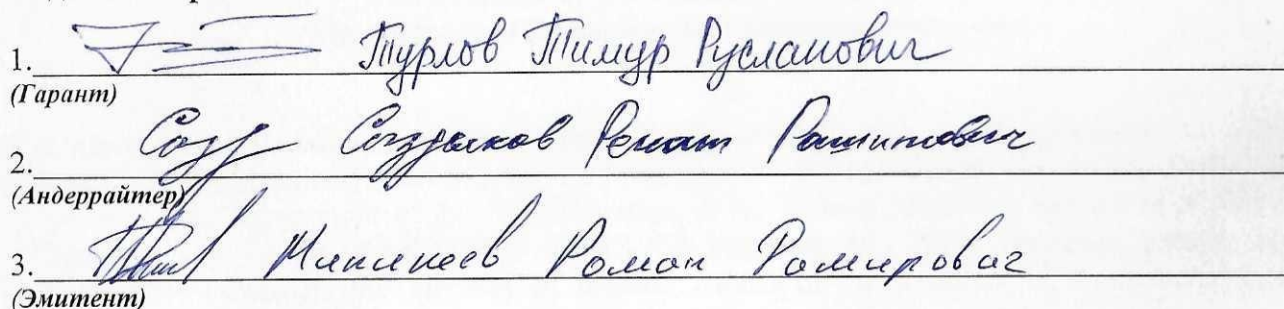 1. Турлов Тимур Русланович
(Гарант)
2. Сыздыков Ренат Рашитович
(Андеррайтер)
3. Миникеев Роман Рамирович
(Эмитент)